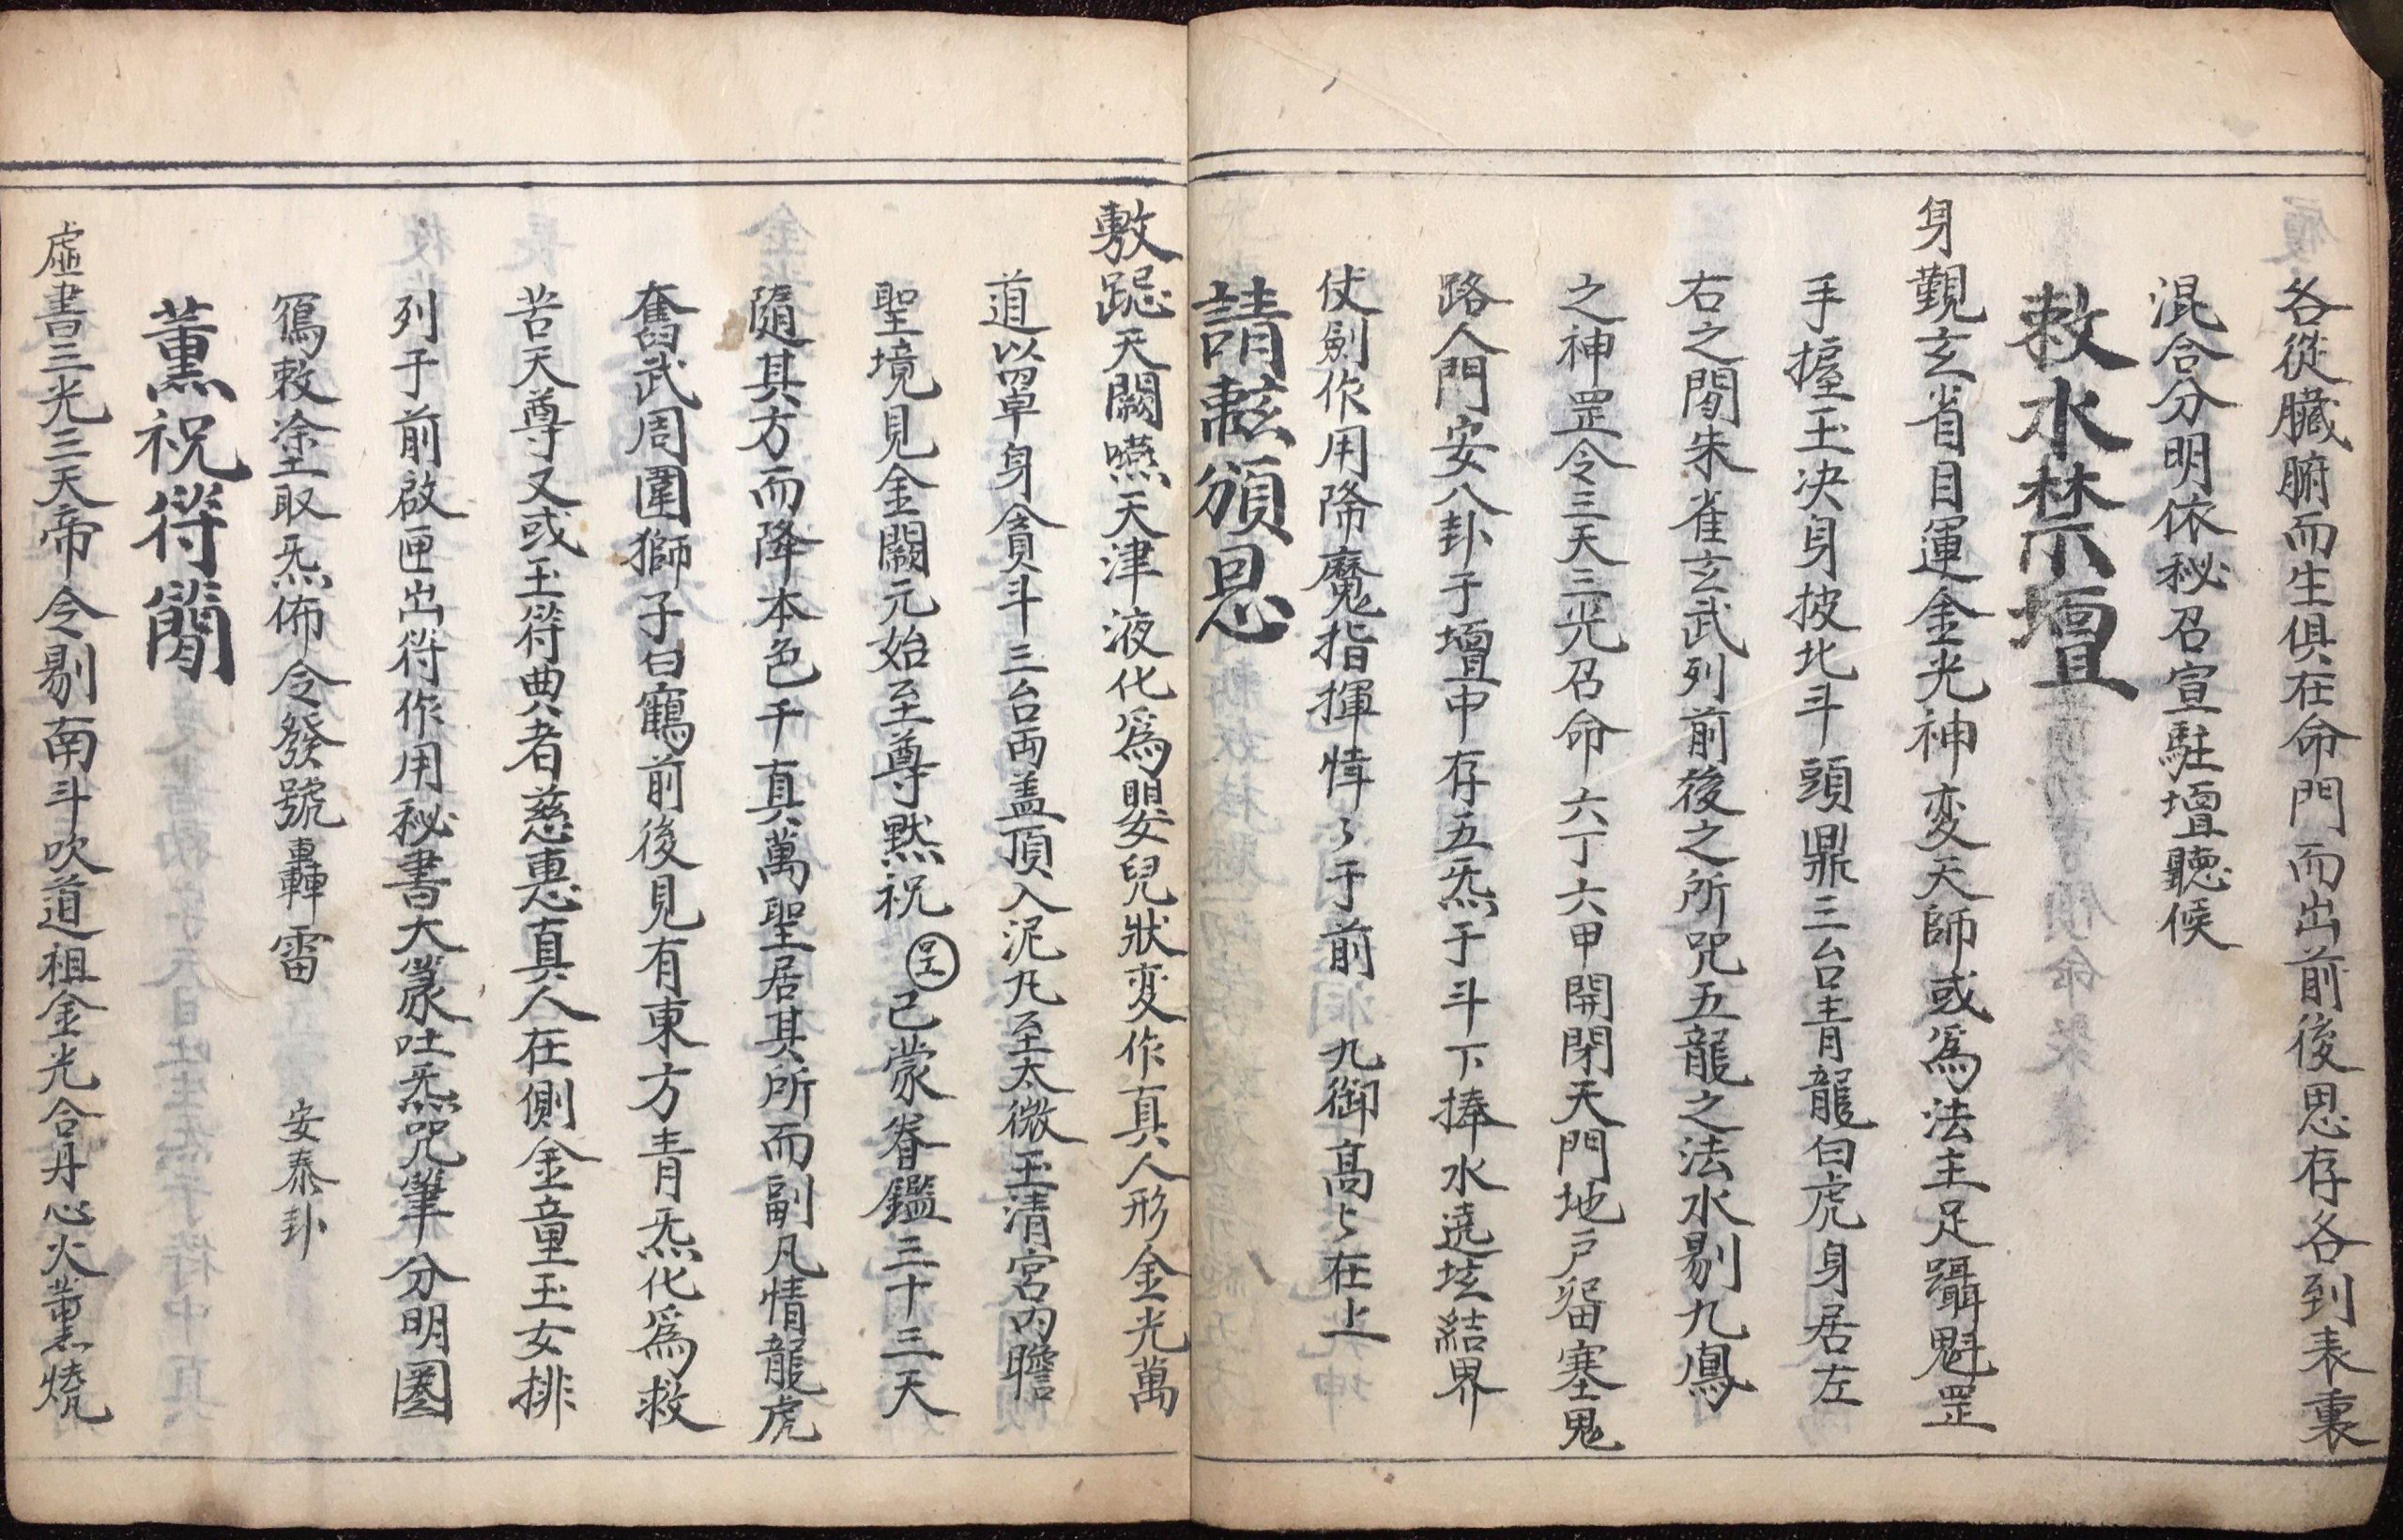 各從臟腑而生俱在命門而出前後思存各到表裏
混合分明依秘召宣駐壇聽候
敕水禁壇
身觀玄省目運金光神変天師或爲法主足躡魁罡
手握玉决身披北斗頭鼎三台青龍白虎身居左
右之間朱雀玄武列前後之所咒五龍之法水剔九鳳
之神罡令三天三光召命六丁六甲開閉天門地户留塞鬼
路人門安八卦于壇中存五炁于斗下捧水遶垓結界
仗劍作用降魔指揮情々于前 九御髙々在上
請頒恩
敷跽天闕嚥天津液化爲嬰兒狀变作真人形金光萬
道以罩身貪斗三台両盖頂入泥丸至太微玉清宮内瞻
聖境見金闕元始至尊黙祝 己蒙眷鑑三十三天
隨其方而降本色千真萬聖居其所而副凡情龍虎
奮武周圍獅子白鶴前後見有東方青炁化爲救
苦天尊又或玉符典者慈惠真人在側金童玉女排
列于前啟匣出符作用秘書大篆吐炁咒筆分明圏
敕塗取炁佈令發號轟雷 安泰卦
薰祝符簡
虛書三光三天帝令剔南斗吹道祖金光合丹心火薰燒